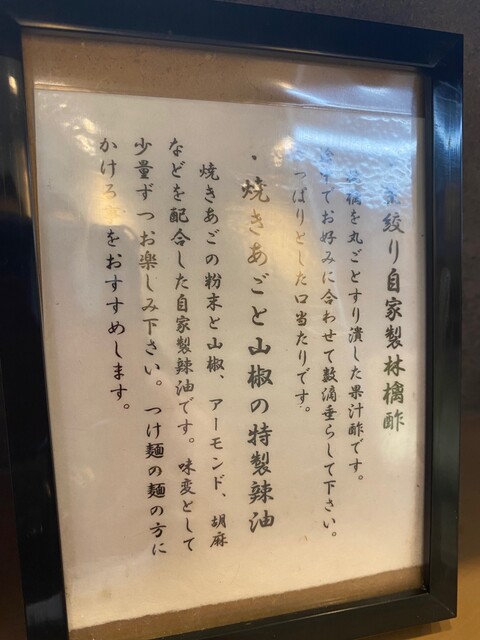 絞り自家製林檎酢
檎を丸ごとすり潰した果汁酢です。
途中でお好みに合わせて数滴垂らして下さい。
っぱりとした口当たりです。
・焼きあごと山椒の特製辣油
焼きあごの粉末と山椒、アーモンド、胡麻
などを配合した自家製辣油です。味変として
少量ずつお楽しみ下さい。つけ麺の麺の方に
かける事をおすすめします。